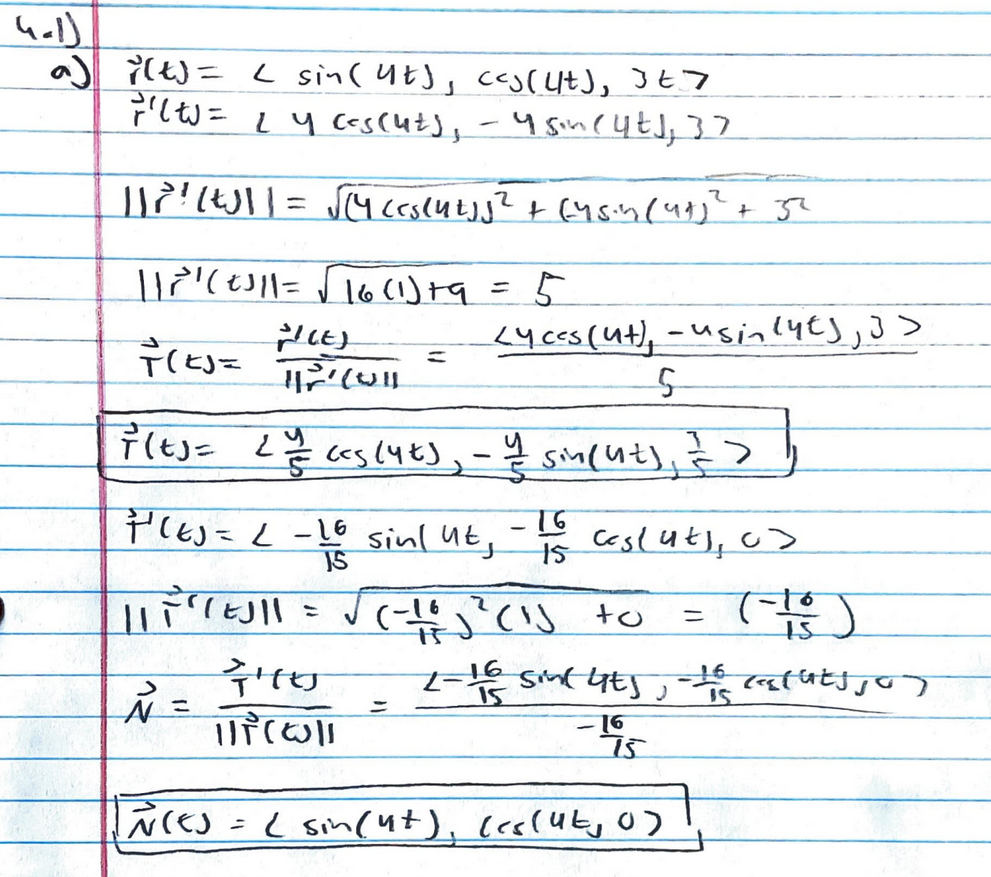 4.1)
a) r⃗(t) = < sin(4t), cos(4t), 3t >
r⃗'(t) = < 4 cos(4t), -4 sin(4t), 3 >
||r⃗'(t)|| = √(4 cos(4t))² + (-4 sin(4t)² + 3²
||r⃗'(t)|| = √16(1)+9 = 5
T⃗(t) = r⃗'(t) / ||r⃗'(t)|| = <4 cos(4t), -4 sin(4t), 3> / 5
T⃗(t) = < 4/5 cos(4t), -4/5 sin(4t), 3/5 >
T⃗'(t) = < -16/15 sin(4t, -16/15 cos(4t), 0 >
||T⃗'(t)|| = √(-16/15)²(1) + 0 = (-16/15)
N⃗ = T⃗'(t) / ||T⃗(t)|| = <-16/15 sin(4t), -16/15 cos(4t), 0> / -16/15
N⃗(t) = < sin(4t), cos(4t, 0 >